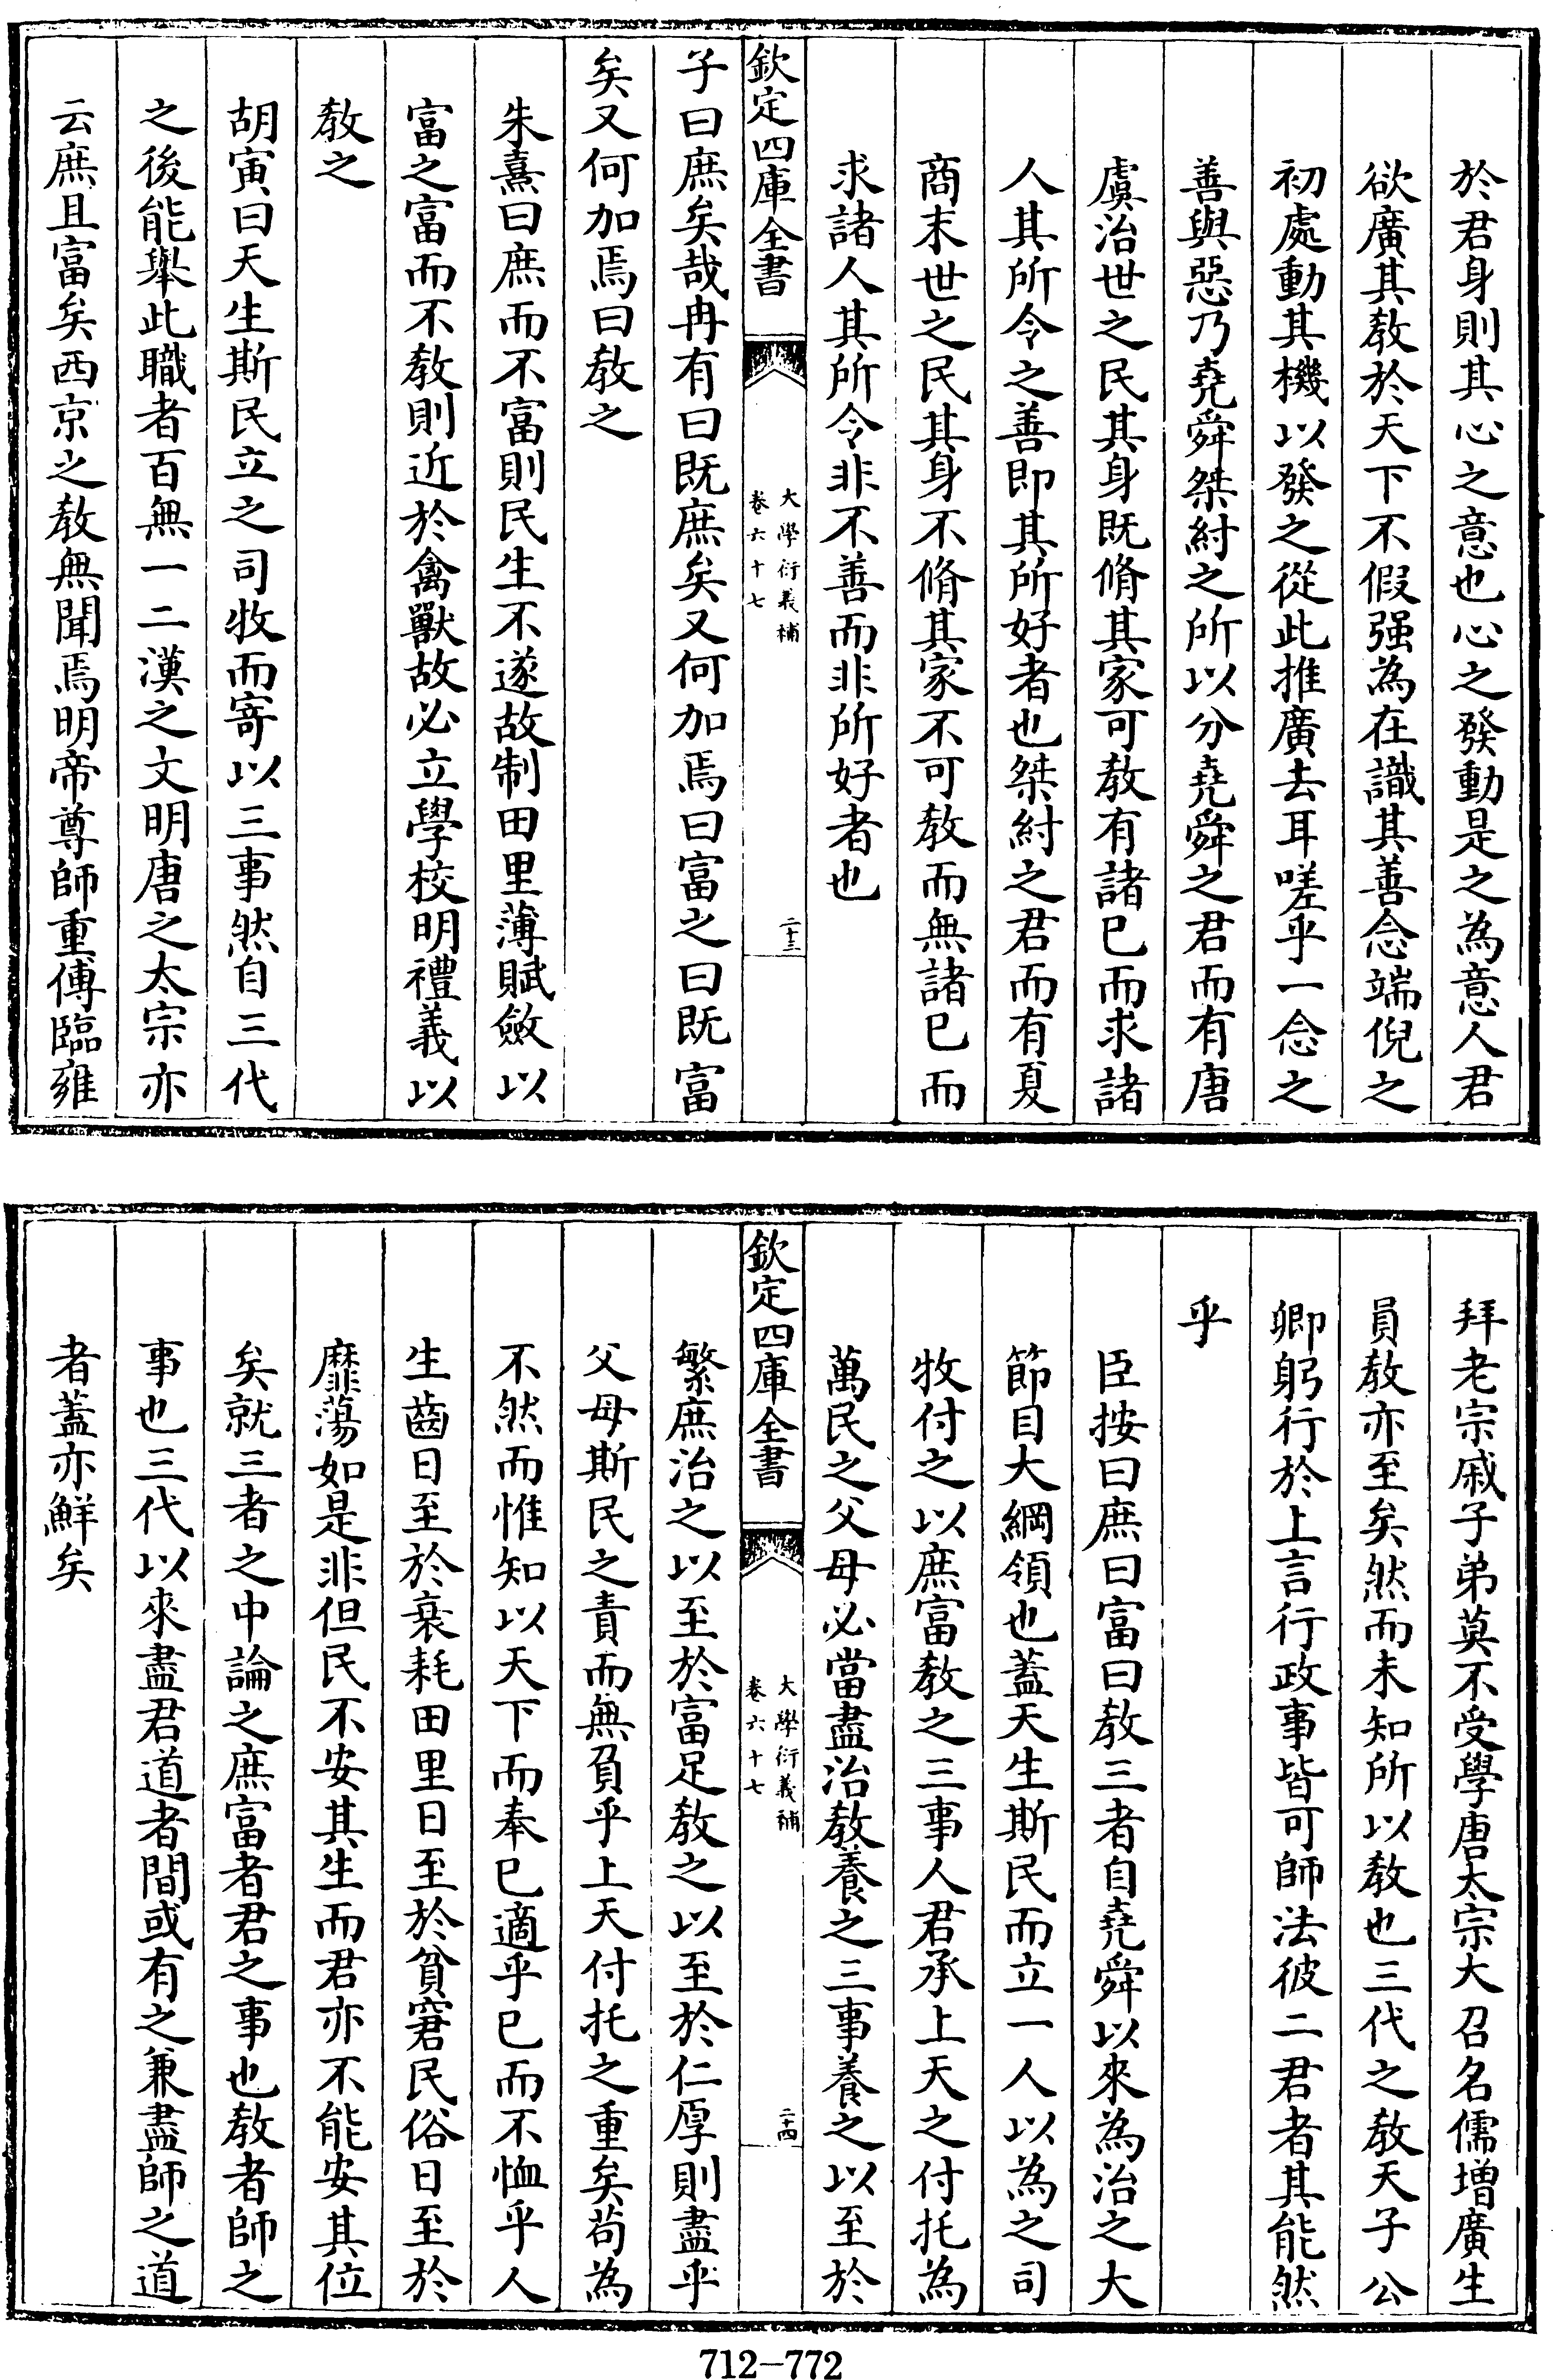 於君身則其心之意也心之發動是之為意人君
欲廣其教於天下不假强為在識其善念端倪之
初處動其機以發之從此推廣去耳嗟乎一念之
善與惡乃堯舜桀紂之所以分堯舜之君而有唐
虞治世之民其身既脩其家可教有諸已而求諸
人其所令之善即其所好者也桀紂之君而有夏
商末世之民其身不脩其家不可教而無諸已而
求諸人其所令非不善而非所好者也
欽定四庫全書
大學衍義補
卷六十七
二十三
子曰庶矣哉冉有曰既庶矣又何加焉曰富之曰既富
矣又何加焉曰教之
朱熹曰庶而不富則民生不遂故制田里薄賦斂以
富之富而不教則近於禽獸故必立學校明禮義以
教之
胡寅曰天生斯民立之司牧而寄以三事然自三代
之後能舉此職者百無一二漢之文明唐之太宗亦
云庶且富矣西京之教無聞焉明帝尊師重傅臨雍
拜老宗戚子弟莫不受學唐太宗大召名儒增廣生
員教亦至矣然而未知所以教也三代之教天子公
卿躬行於上言行政事皆可師法彼二君者其能然
乎
臣按曰庶曰富曰教三者自堯舜以來為治之大
節目大綱領也蓋天生斯民而立一人以為之司
牧付之以庶富教之三事人君承上天之付托為
萬民之父母必當盡治教養之三事養之以至於
欽定四庫全書
大學衍義補
卷六十七
二十四
繁庶治之以至於富足教之以至於仁厚則盡乎
父母斯民之責而無負乎上天付托之重矣苟為
不然而惟知以天下而奉已適乎已而不恤乎人
生齒日至於衰耗田里日至於貧窘民俗日至於
靡蕩如是非但民不安其生而君亦不能安其位
矣就三者之中論之庶富者君之事也教者師之
事也三代以來盡君道者間或有之兼盡師之道
者蓋亦鮮矣
712-772